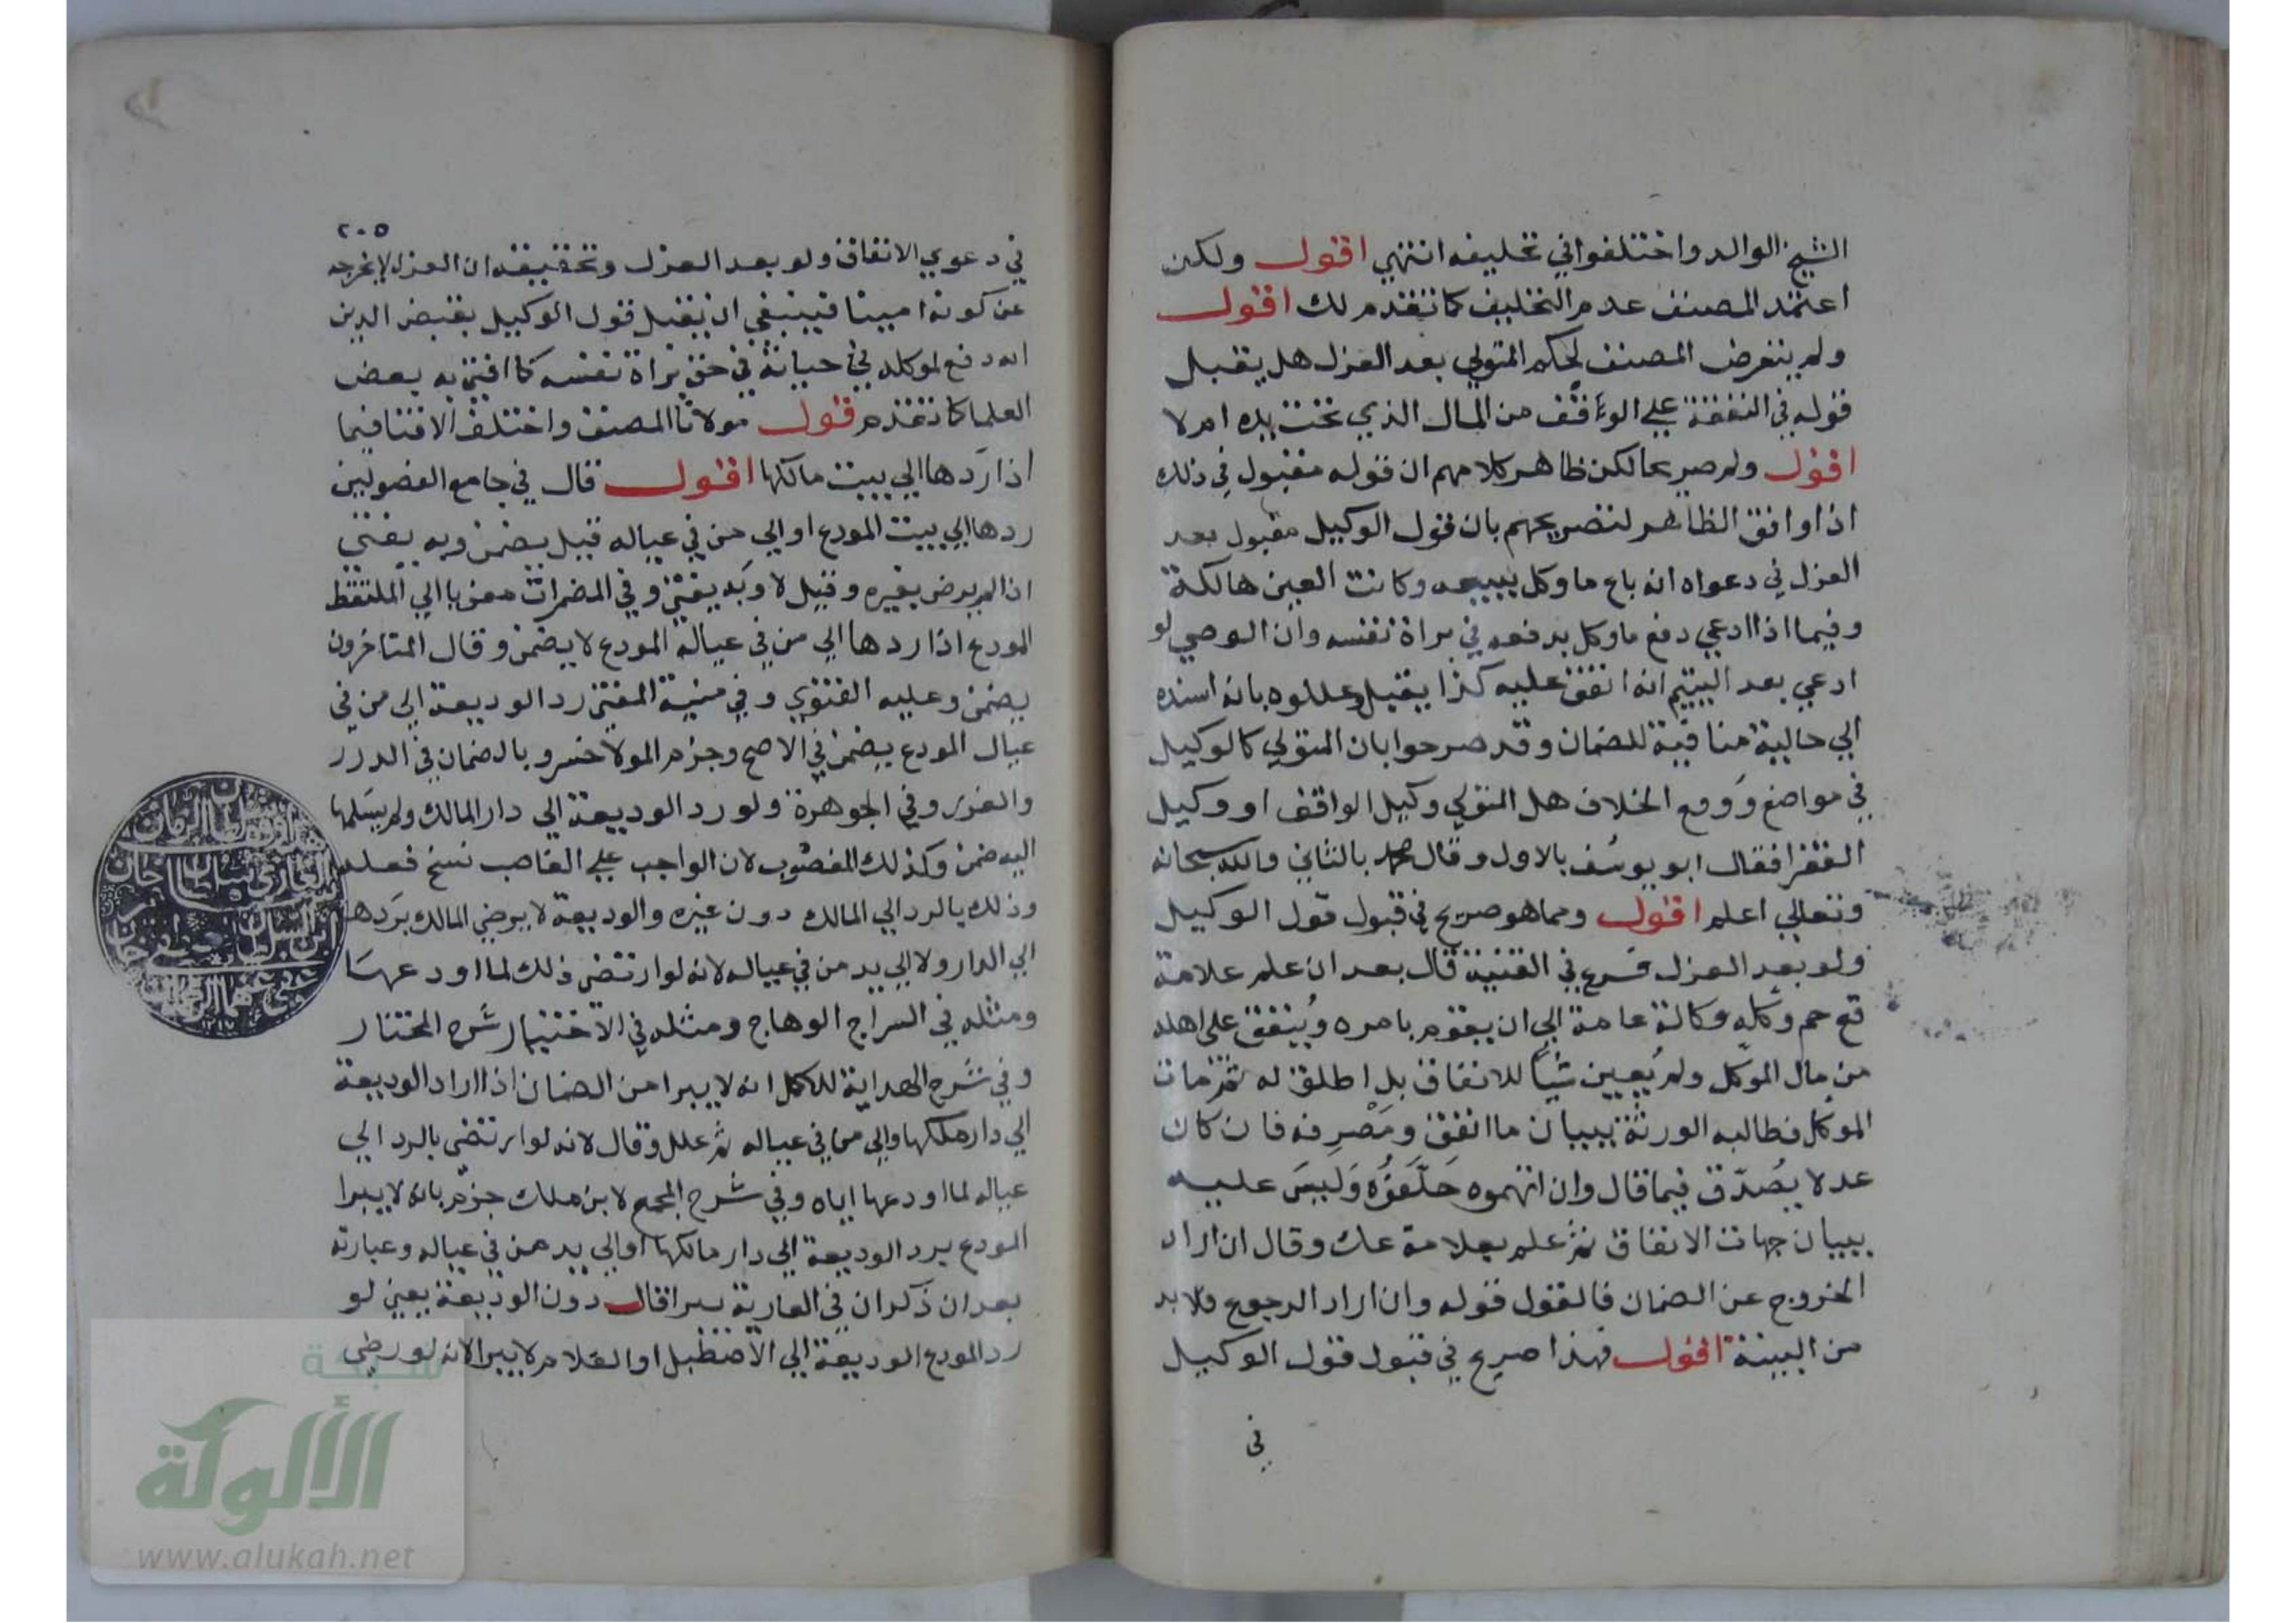 الشيخ الوالد واختلفوا في تحليفه انتهي اقول ولكن
اعتمد المصنف عدم التحليف كما تقدم لك اقول
ولم يتعرض المصنف لحكم المتولي بعد العزل هل يقبل
قوله في النفقة علي الوقف من المال الذي تحت يده ام لا
اقول ولم صريحا لكن ظاهر كلامهم ان قوله مقبول في ذلك
اذا وافق الظاهر لتصريحهم بان قول الوكيل مقبول بعد
العزل في دعواه انه باع ما وكل ببيعه وكانت العين هالكة
وفيما اذا ادعي دفع ما وكل بدفعه في براة نفسه وان الوصي لو
ادعي بعد اليتيم انه انفق عليه كذا يقبل وعللوه بانه اسنده
الي حالية منافية للضمان وقد صرحوا بان المتولي كالوكيل
في مواضع ووقع الخلاف هل المتولي وكيل الواقف او وكيل
الفقرا فقال ابو يوسف بالاول وقال محمد بالثاني والله سبحانه
وتعالي اعلم اقول ومما هو صريح في قبول قول الوكيل
ولو بعد العزل فرع في القنية قال بعد ان علم علامة
قع حم وكله وكالة عامة الي ان يقوم بامره وينفق على اهله
من مال الموكل ولم يعين شيأ للانفاق بل اطلق له ثم مات
الموكل فطالبه الورثة ببيان ما انفق ومصرفه فان كان
عدلا يصدق فيما قال وان اتهموه حلفوه وليس عليه
بيان جهات الانفاق ثم علم بعلامة عك وقال ان اراد
الخروج عن الضمان فالقول قوله وان اراد الرجوع فلا بد
من البينة اقول فهذا صريح في قبول قول الوكيل
في
٢٠٥
في دعوي الانفاق ولو بعد العزل وتحقيقه ان العزل لا يخرجه
عن كونه امينا فينبغي ان يقبل قول الوكيل بقبض الدين
انه دفع لموكله في حياته في حق براة نفسه كما افتي به بعض
العلما كما تقدم قول مولانا المصنف واختلف الافتا فيما
اذا ردها الي بيت مالكها اقول قال في جامع الفصولين
ردها الي بيت المودع او الي من في عياله قيل يضمن وبه يفتي
اذا لم يرض بغيره وقيل لا وبه يفتي وفي المضمرات معزيا الي الملتقط
المودع اذا ردها الي من في عيال المودع لا يضمن وقال المتاخرون
يضمن وعليه الفتوي وفي منية المفتي رد الوديعة الي من في
عيال المودع يضمن في الاصح وجزم المولا خسرو بالضمان في الدرر
والغرر وفي الجوهرة ولو رد الوديعة الي دار المالك ولم يسلمها
اليه ضمن وكذلك المغصوب لان الواجب علي الغاصب نسخ فعله
وذلك بالرد الي المالك دون غيره والوديعة لا يرضي المالك بردها
الي الدار ولا الي يد من في عياله لانه لو ارتضي ذلك لما اودعها
ومثله في السراج الوهاج ومثله في الاختيار شرح المختار
وفي شرح الهداية للاكمل انه لا يبرا من الضمان اذا اراد الوديعة
الي دار ملكها والي من في عياله ثم علل وقال لانه لو ارتضي بالرد الي
عياله لما اودعها اياه وفي شرح المجمع لابن ملك جزم بانه لا يبرا
المودع برد الوديعة الي دار مالكها او الي يد من في عياله وعبارته
بعد ان ذكر ان في العارية يبرا قال دون الوديعة يعني لو
رد المودع الوديعة الي الاصطبل او الغلام لا يبرا لانه لو رضي
شبكة
الألوكة
www.alukah.net